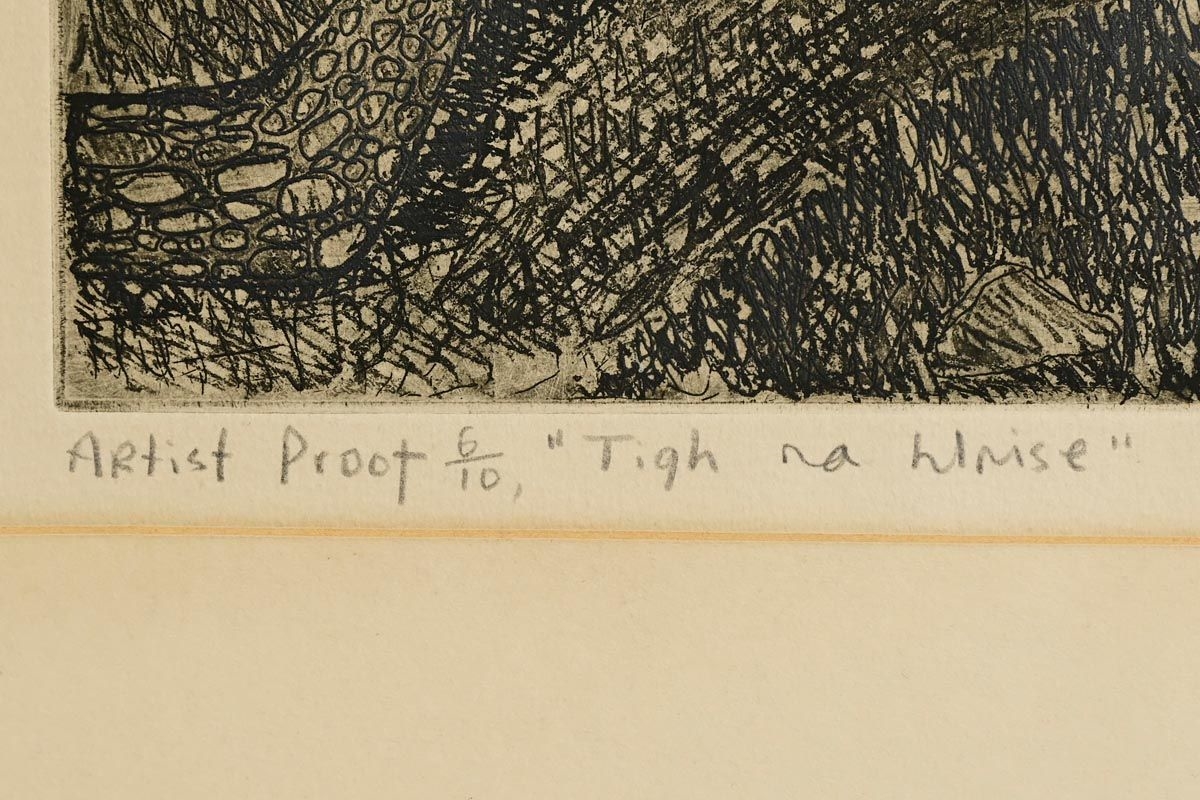 Artist Proof 6/10, "Tigh na hUnise"